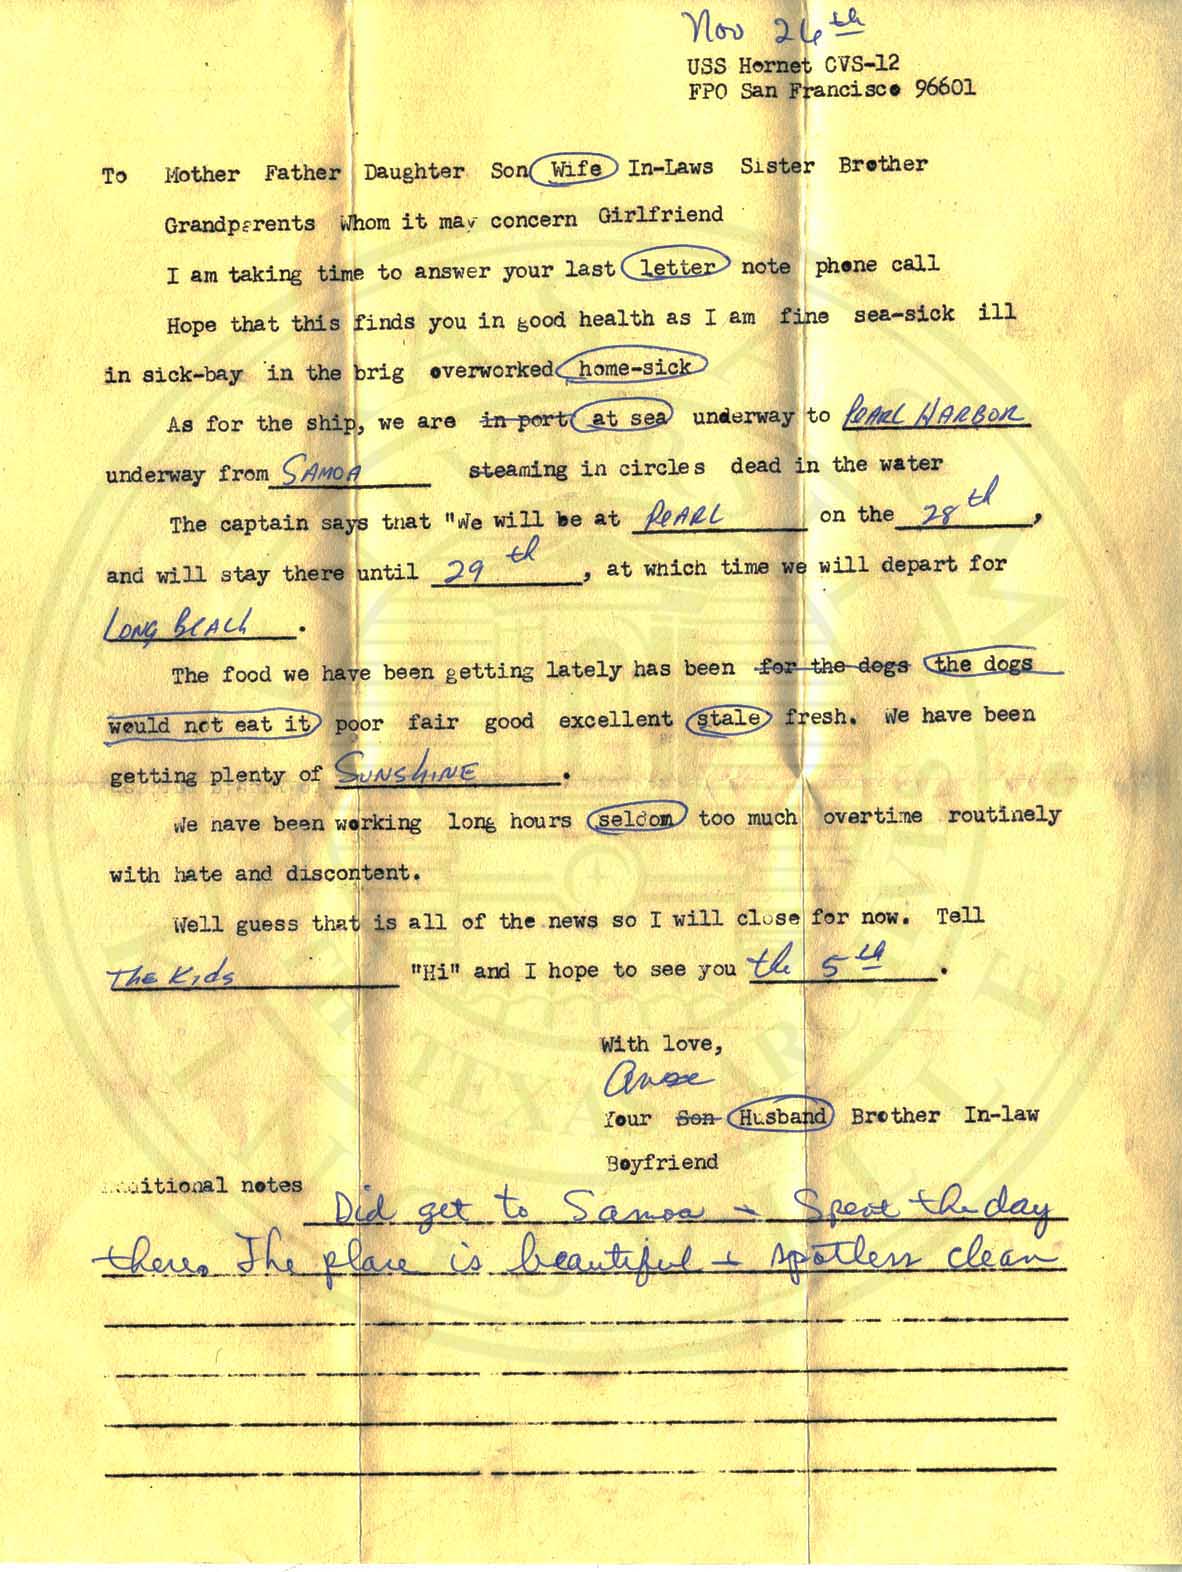 Nov 26th
USS Hornet CVS-12
FPO San Francisco 96601
To Mother Father Daughter Son Wife In-Laws Sister Brother
Grandparents Whom it may concern Girlfriend
I am taking time to answer your last letter note phone call
Hope that this finds you in good health as I am fine sea-sick ill
in sick-bay in the brig overworked home-sick
As for the ship, we are in port at sea underway to PEARL HARBOR
underway from SAMOA steaming in circles dead in the water
The captain says that "We will be at PEARL on the 28th,
and will stay there until 29th, at which time we will depart for
LONG BEACH.
The food we have been getting lately has been for the dogs the dogs
would not eat it poor fair good excellent stale fresh. We have been
getting plenty of SUNSHINE.
We have been working long hours seldom too much overtime routinely
with hate and discontent.
Well guess that is all of the news so I will close for now. Tell
THE Kids "Hi" and I hope to see you the 5th.
With love,
Your Son Husband Brother In-law
Boyfriend
Additional notes Did get to Samoa + Spent the day
there. The place is beautiful + spotless clean